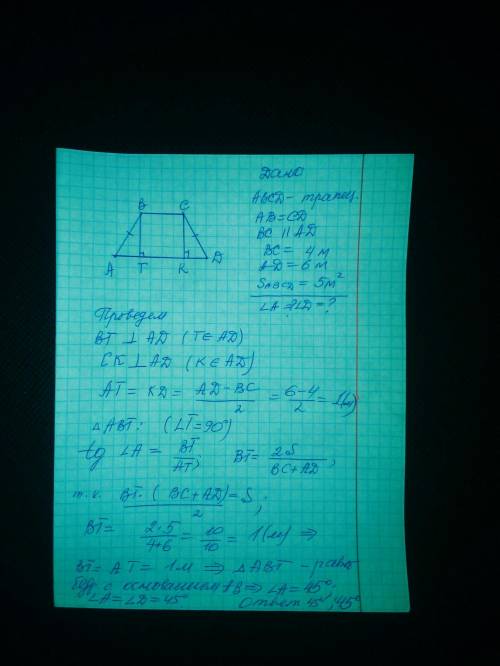 Дано
ABCD - трапец.
AB = CD
BC || AD
BC = 4 м
AD = 6 м
S ABCD = 5 м²
∠A = ∠D = ?
B C
A T K D
Проведем
BT ⊥ AD (T ∈ AD)
CK ⊥ AD (K ∈ AD)
AT = KD = (AD - BC)/2 = (6-4)/2 = 1(м)
△ABT: (∠T = 90°)
tg ∠A = BT/AT; BT = 2S/(BC+AD);
т.к. BT·(BC+AD)/2 = S;
BT = 2·5/(4+6) = 10/10 = 1(м) ⇒
BT = AT = 1м ⇒ △ABT - равно
бедр с основанием AB ⇒ ∠A = 45°,
∠A = ∠D = 45° Ответ 45°, 45°